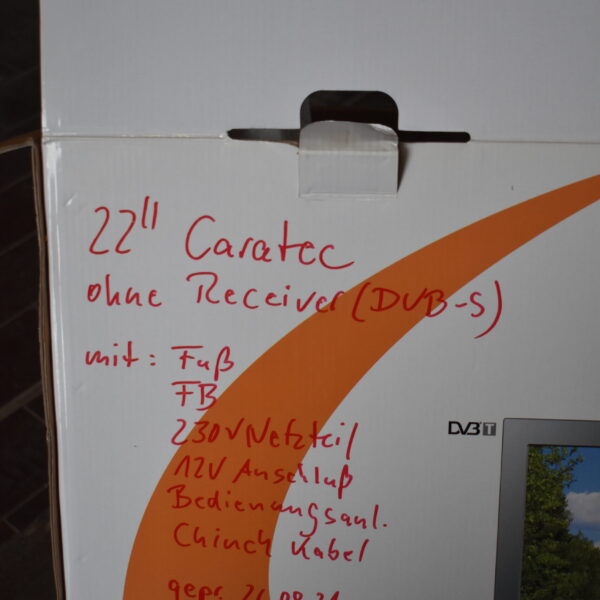 22" Caratec
ohne Receiver (DVB-S)
mit: Fuß
FB
230V Netzteil
12V Anschluß
Bedienungsanl.
Chinch Kabel
gepr.
DVB T